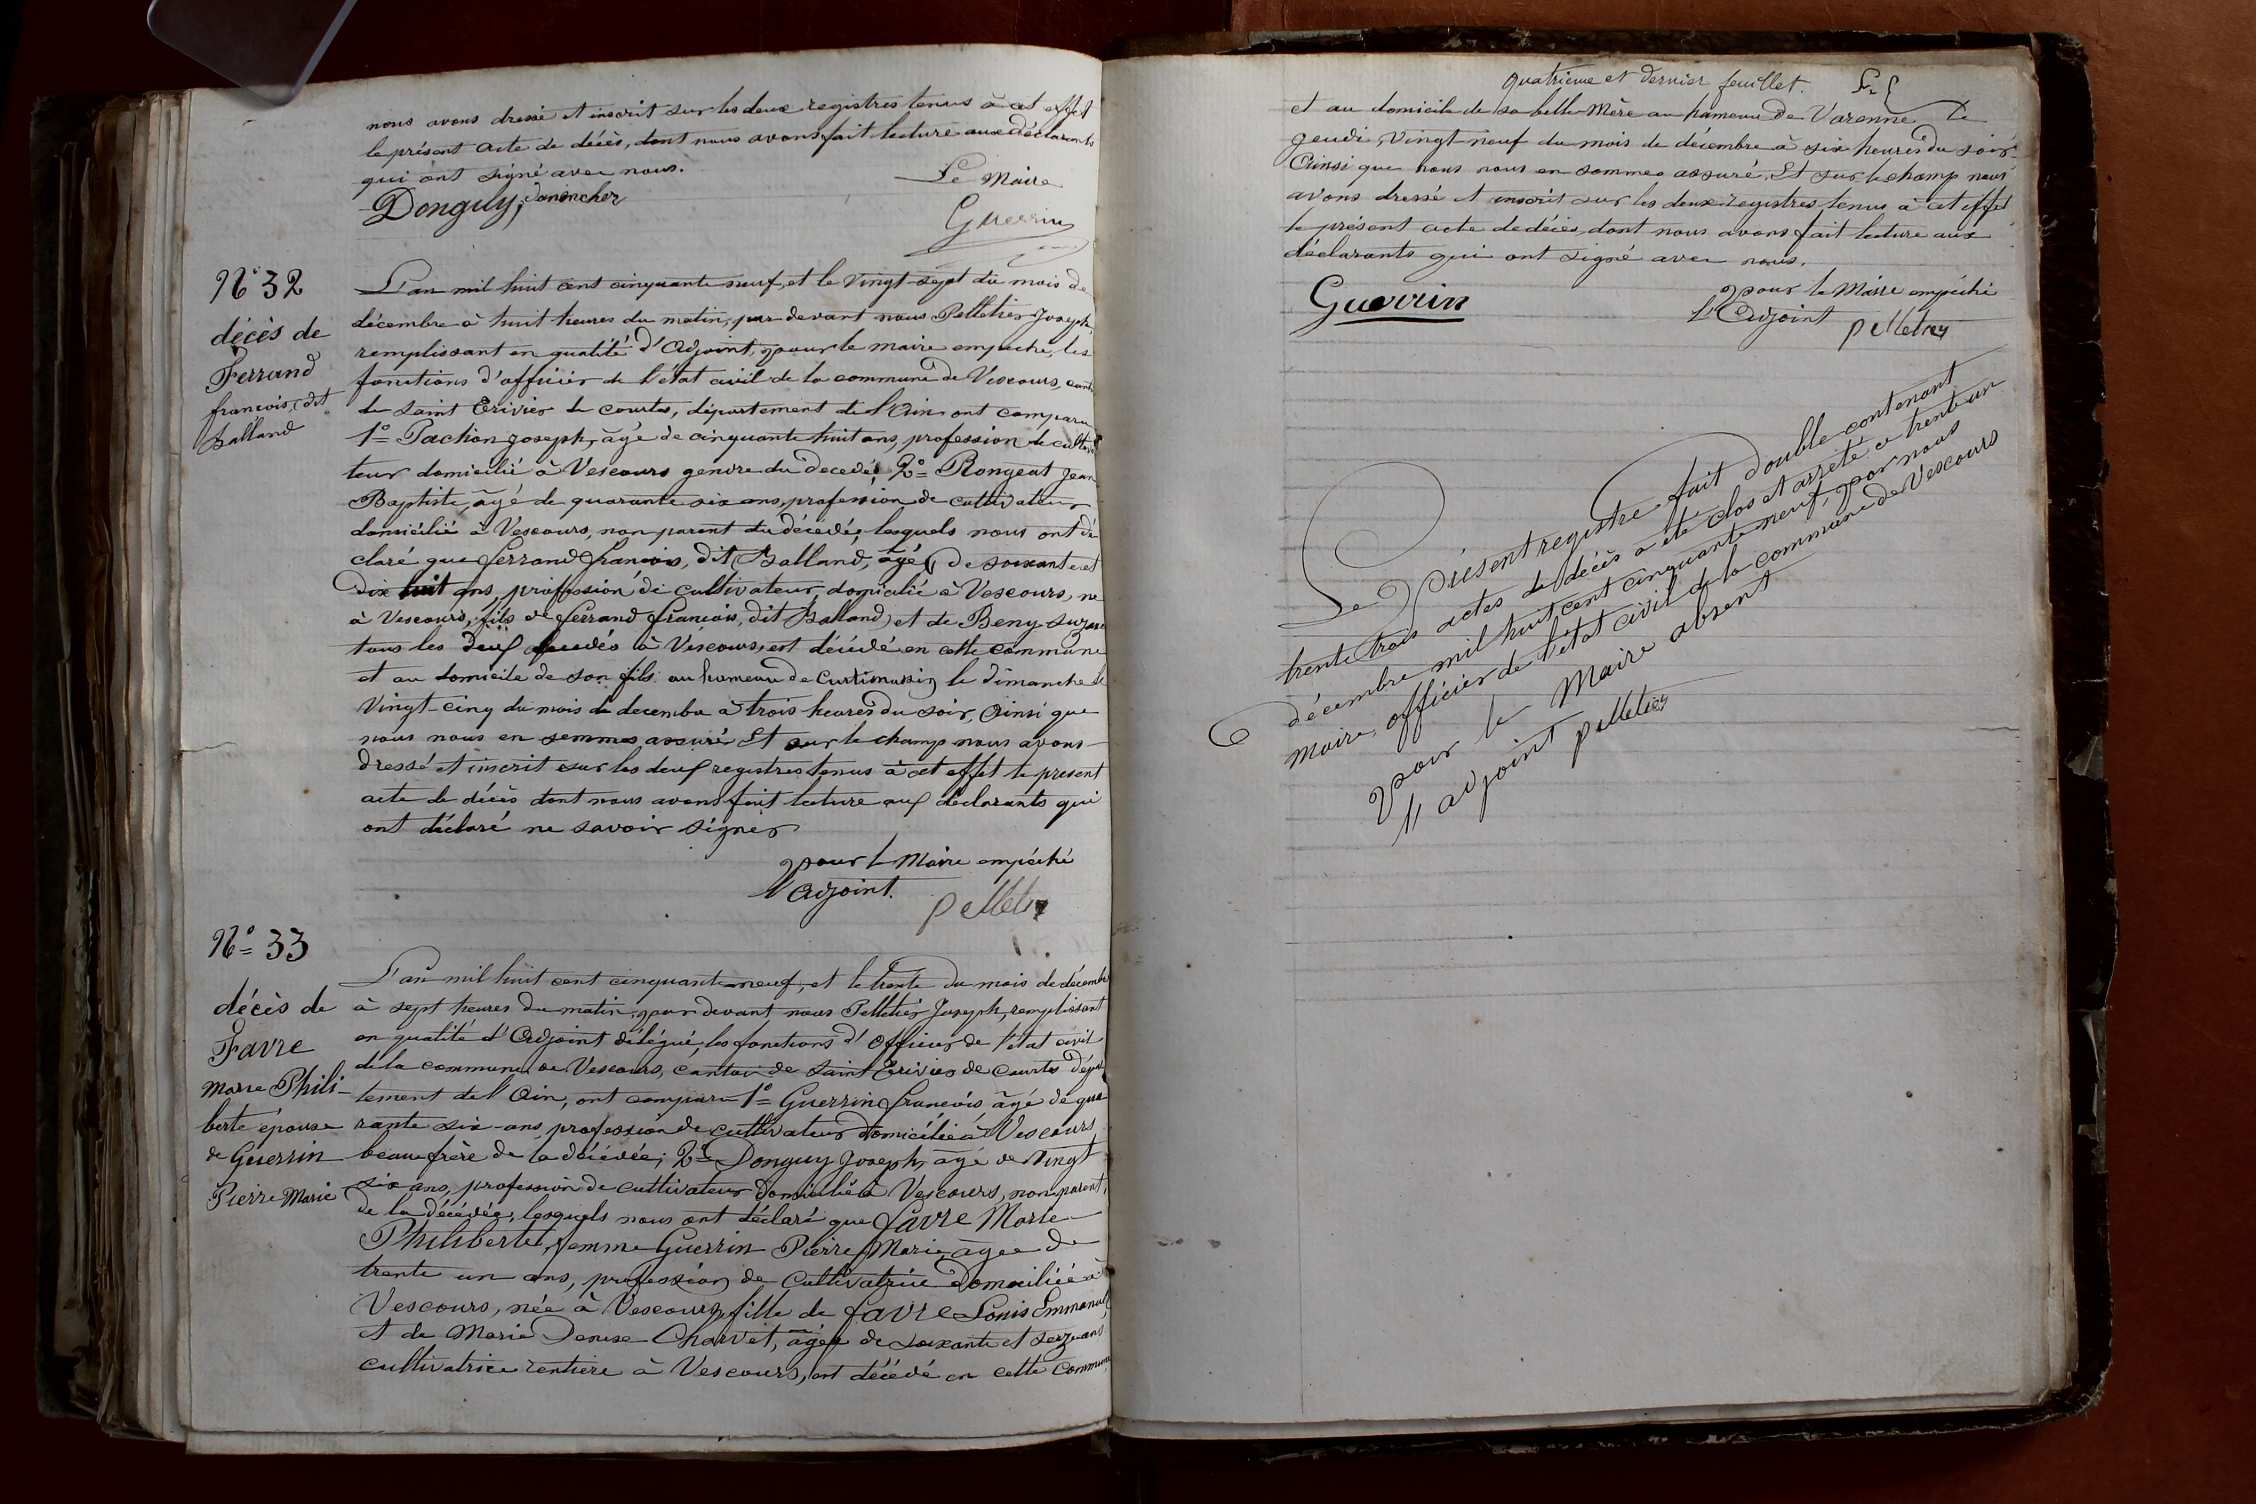 nous avons dressé et inscrit sur les deux registres tenus à cet effet
le présent acte de décès, dont nous avons fait lecture aux déclarants
qui ont signé avec nous.
Le Maire
Donguy,
Guerrin
N° 32
décès de
Ferrand
françois, dit
Balland
L'an mil huit cent cinquante neuf, et le vingt-sept du mois de
décembre à huit heures du matin, par devant nous Pelletier Joseph,
remplissant en qualité d'Adjoint, pour le maire empeché, les
fonctions d'officier de l'état civil de la commune de Vescours, canton
de Saint Trivier de courtes, département de l'Ain ont comparu
1° Pachon joseph, âgé de cinquante huit ans, profession de cultiva
teur domicilié à Vescours gendre du decedé, 2° Rongeat Jean
Baptiste, âgé de quarante six ans, profession de cultivateur
domicilié à Vescours, non parent du décédé, lesquels nous ont dé
claré que ferrand françois, dit Balland, âgé de soixante et
dix huit ans, profession de cultivateur, domicilié à Vescours, né
à Vescours, fils de ferrand francois, dit Balland, et de Beny Suzane
tous les deux décédés à Vescours, est décédé en cette commune
et au domicile de son fils au hameau de Curtimassin le dimanche
vingt-cinq du mois de decembre à trois heures du soir, Ainsi que
nous nous en sommes assuré Et sur le champ nous avons
dressé et inscrit sur les deux registres tenus à cet effet le present
acte de décès dont nous avons fait lecture aux déclarants qui
ont déclaré ne savoir signer
pour le Maire empéché
l'Adjoint.
pelletier
N° 33
décès de
Favre
Marie Phili-
berte épouse
de Guerrin
Pierre Marie
L'an mil huit cent cinquante neuf, et le trente du mois de décembre
à sept heures du matin, par devant nous Pelletier Joseph, remplissant
en qualité d'Adjoint délégué, les fonctions d'officier de l'état civil
de la commune de Vescours, canton de saint Trivier de Courtes dépar
tement de l'Ain, ont comparu 1° Guerrin francois, âgé de qua
rante six ans, profession de cultivateur domicilié à Vescours
beau frère de la décédée; 2° Donguy Joseph, âgé de vingt
six ans, profession de cultivateur domicilié à Vescours, non parent
de la décédée, lesquels nous ont déclaré que favre Marie
Philiberte, femme Guerrin Pierre Marie, âgée de
trente un ans, profession de cultivatrice domiciliée à
Vescours, née à Vescours, fille de favre Louis Emmanuel
et de Marie Denise Charvet, âgée de soixante et seize ans
cultivatrice rentiere à Vescours, est décédé en cette commune
quatrieme et dernier feuillet.
et au domicile de sa belle-Mère au hameau de Varenne le
jeudi, vingt-neuf du mois de décembre à six heures du soir
Ainsi que nous nous en sommes assuré. Et sur le champ nous
avons dressé et inscrit sur les deux registres tenus à cet effet
le présent acte de décès, dont nous avons fait lecture aux
déclarants qui ont signé avec nous.
pour le Maire empéché
Guerrin
L'Adjoint pelletier
Le présent registre fait double contenant
trente trois actes de décès a été clos et arrété ce trente un
décembre mil huit cent cinquante neuf, par nous
maire, officier de l'état civil de la commune de Vescours
pour le Maire absent
l'adjoint pelletier